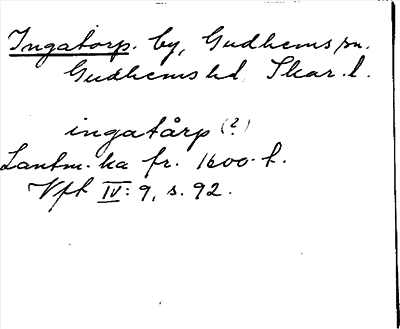 Ingatorp. by, Gudhems sn.
Gudhems hd, Skar. l.
ingatårp (?)
Lantm. ka fr. 1600-t.
Vft IV: 9, s. 92.